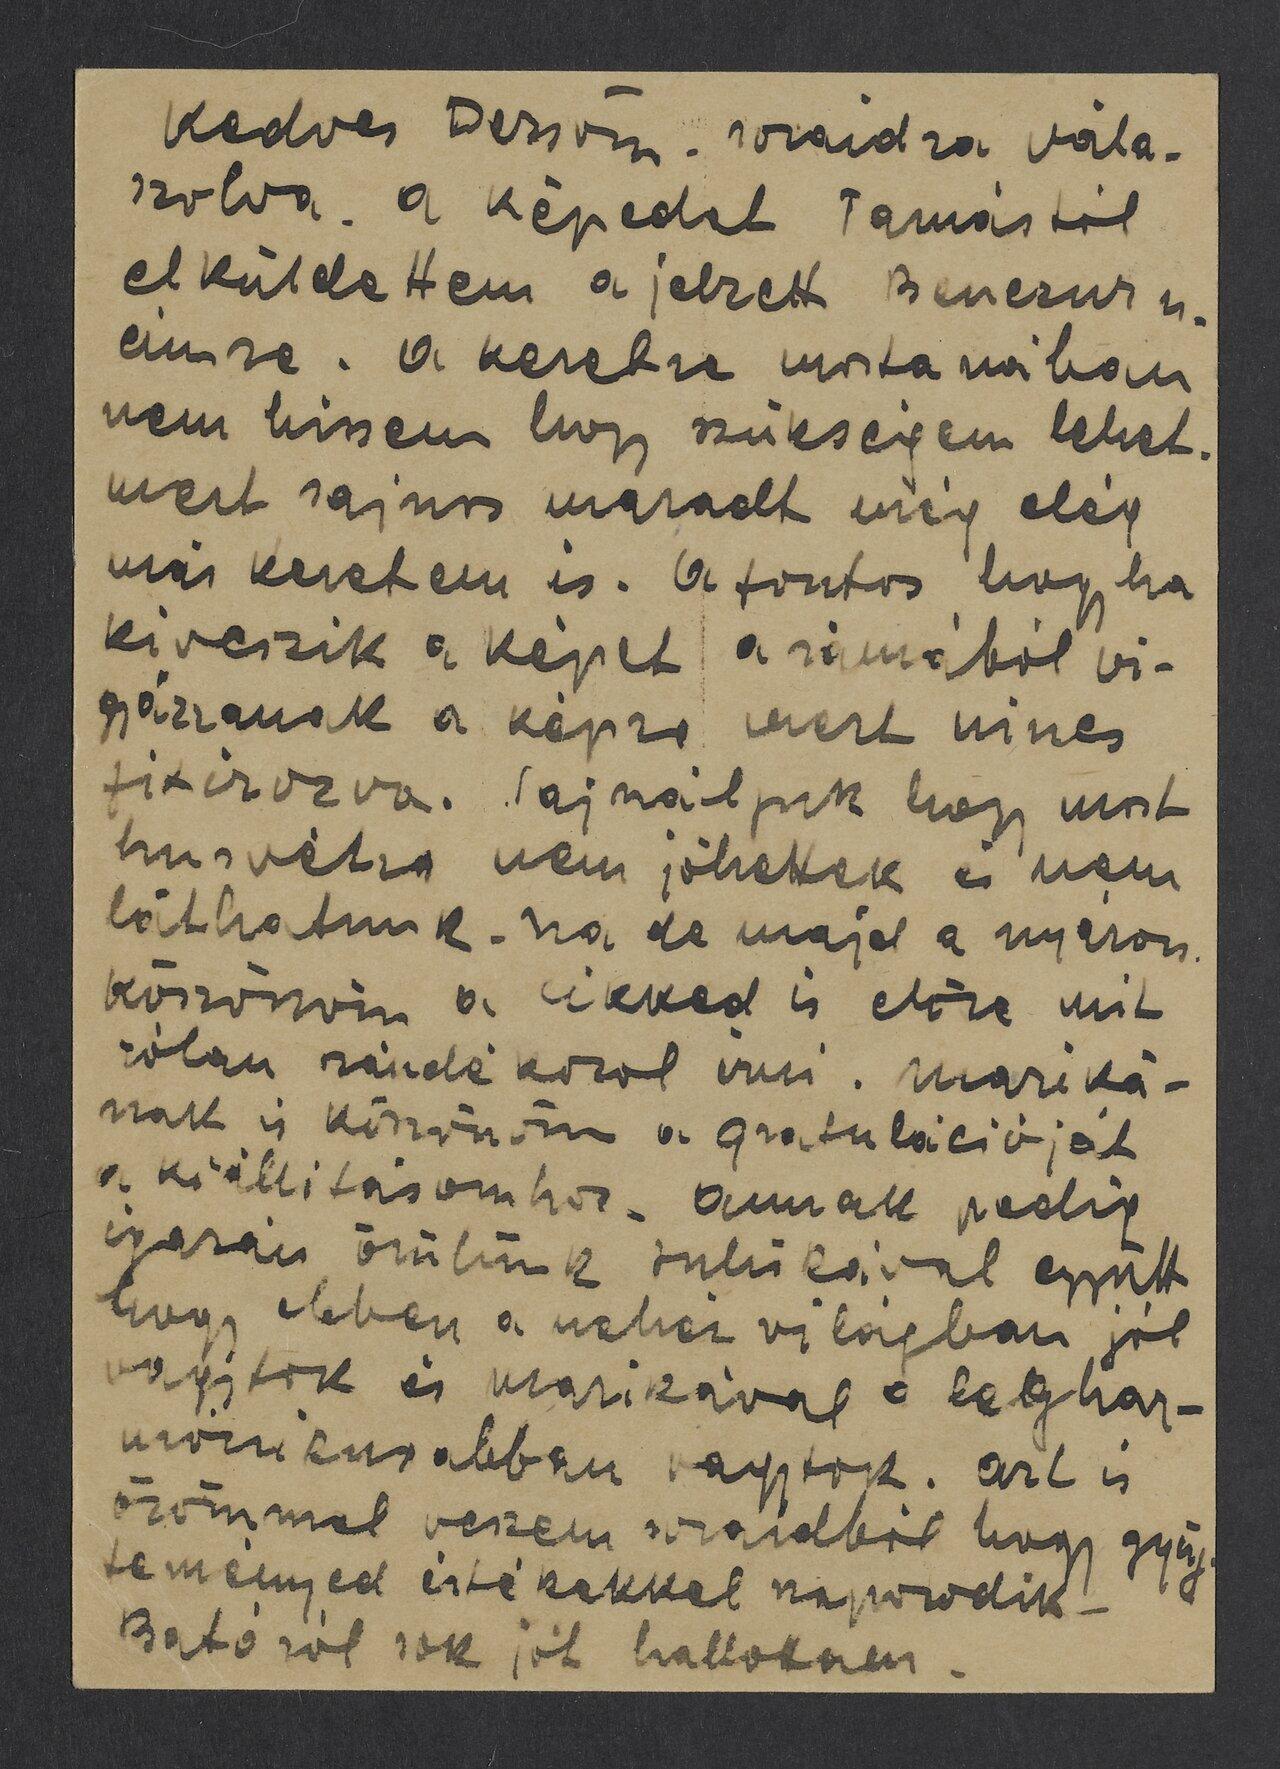 Kedves Dezsőm. soraidra vála-
szolva. A képedet Tamástól
elküldettem a jelzett Benczur u.
cimre. A keretre mostanában
nem hissem hogy szükségem lehet.
mert sajnos maradt még elég
más keretem is. A fontos hogy ha
kiveszik a képet a rámából vi-
gyázzanak a képre mert nincs
fixirozva. Sajnáljuk hogy most
husvétra nem jöhettek és nem
láthatunk. Na de majd a nyáron.
Köszönöm a cikked is előre mit
rólam szándékozol irni. Mariká-
nak is köszönöm a gratulációját
a kiállitásomhoz. Annak pedig
igazán örülünk Zulukával együtt
hogy ebben a nehéz világban jól
vagytok és Marikával a leghar-
mónikusabban vagytok. Azt is
örömmel veszem soraidból hogy gyüj-
teményed értékekkel szaporodik –
Batóról sok jót hallottam.